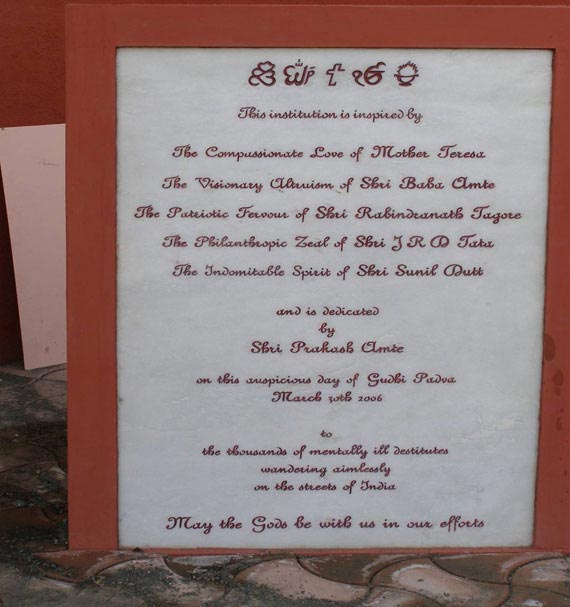 This institution is inspired by
The Compassionate Love of Mother Teresa
The Visionary Altruism of Shri Baba Amte
The Patriotic Fervour of Shri Rabindranath Tagore
The Philanthropic Zeal of Shri J R D Tata
The Indomitable Spirit of Shri Sunil Dutt
and is dedicated
by
Shri Prakash Amte
on this auspicious day of Gudhi Padva
March 30th 2006
to
the thousands of mentally ill destitutes
wandering aimlessly
on the streets of India
May the Gods be with us in our efforts